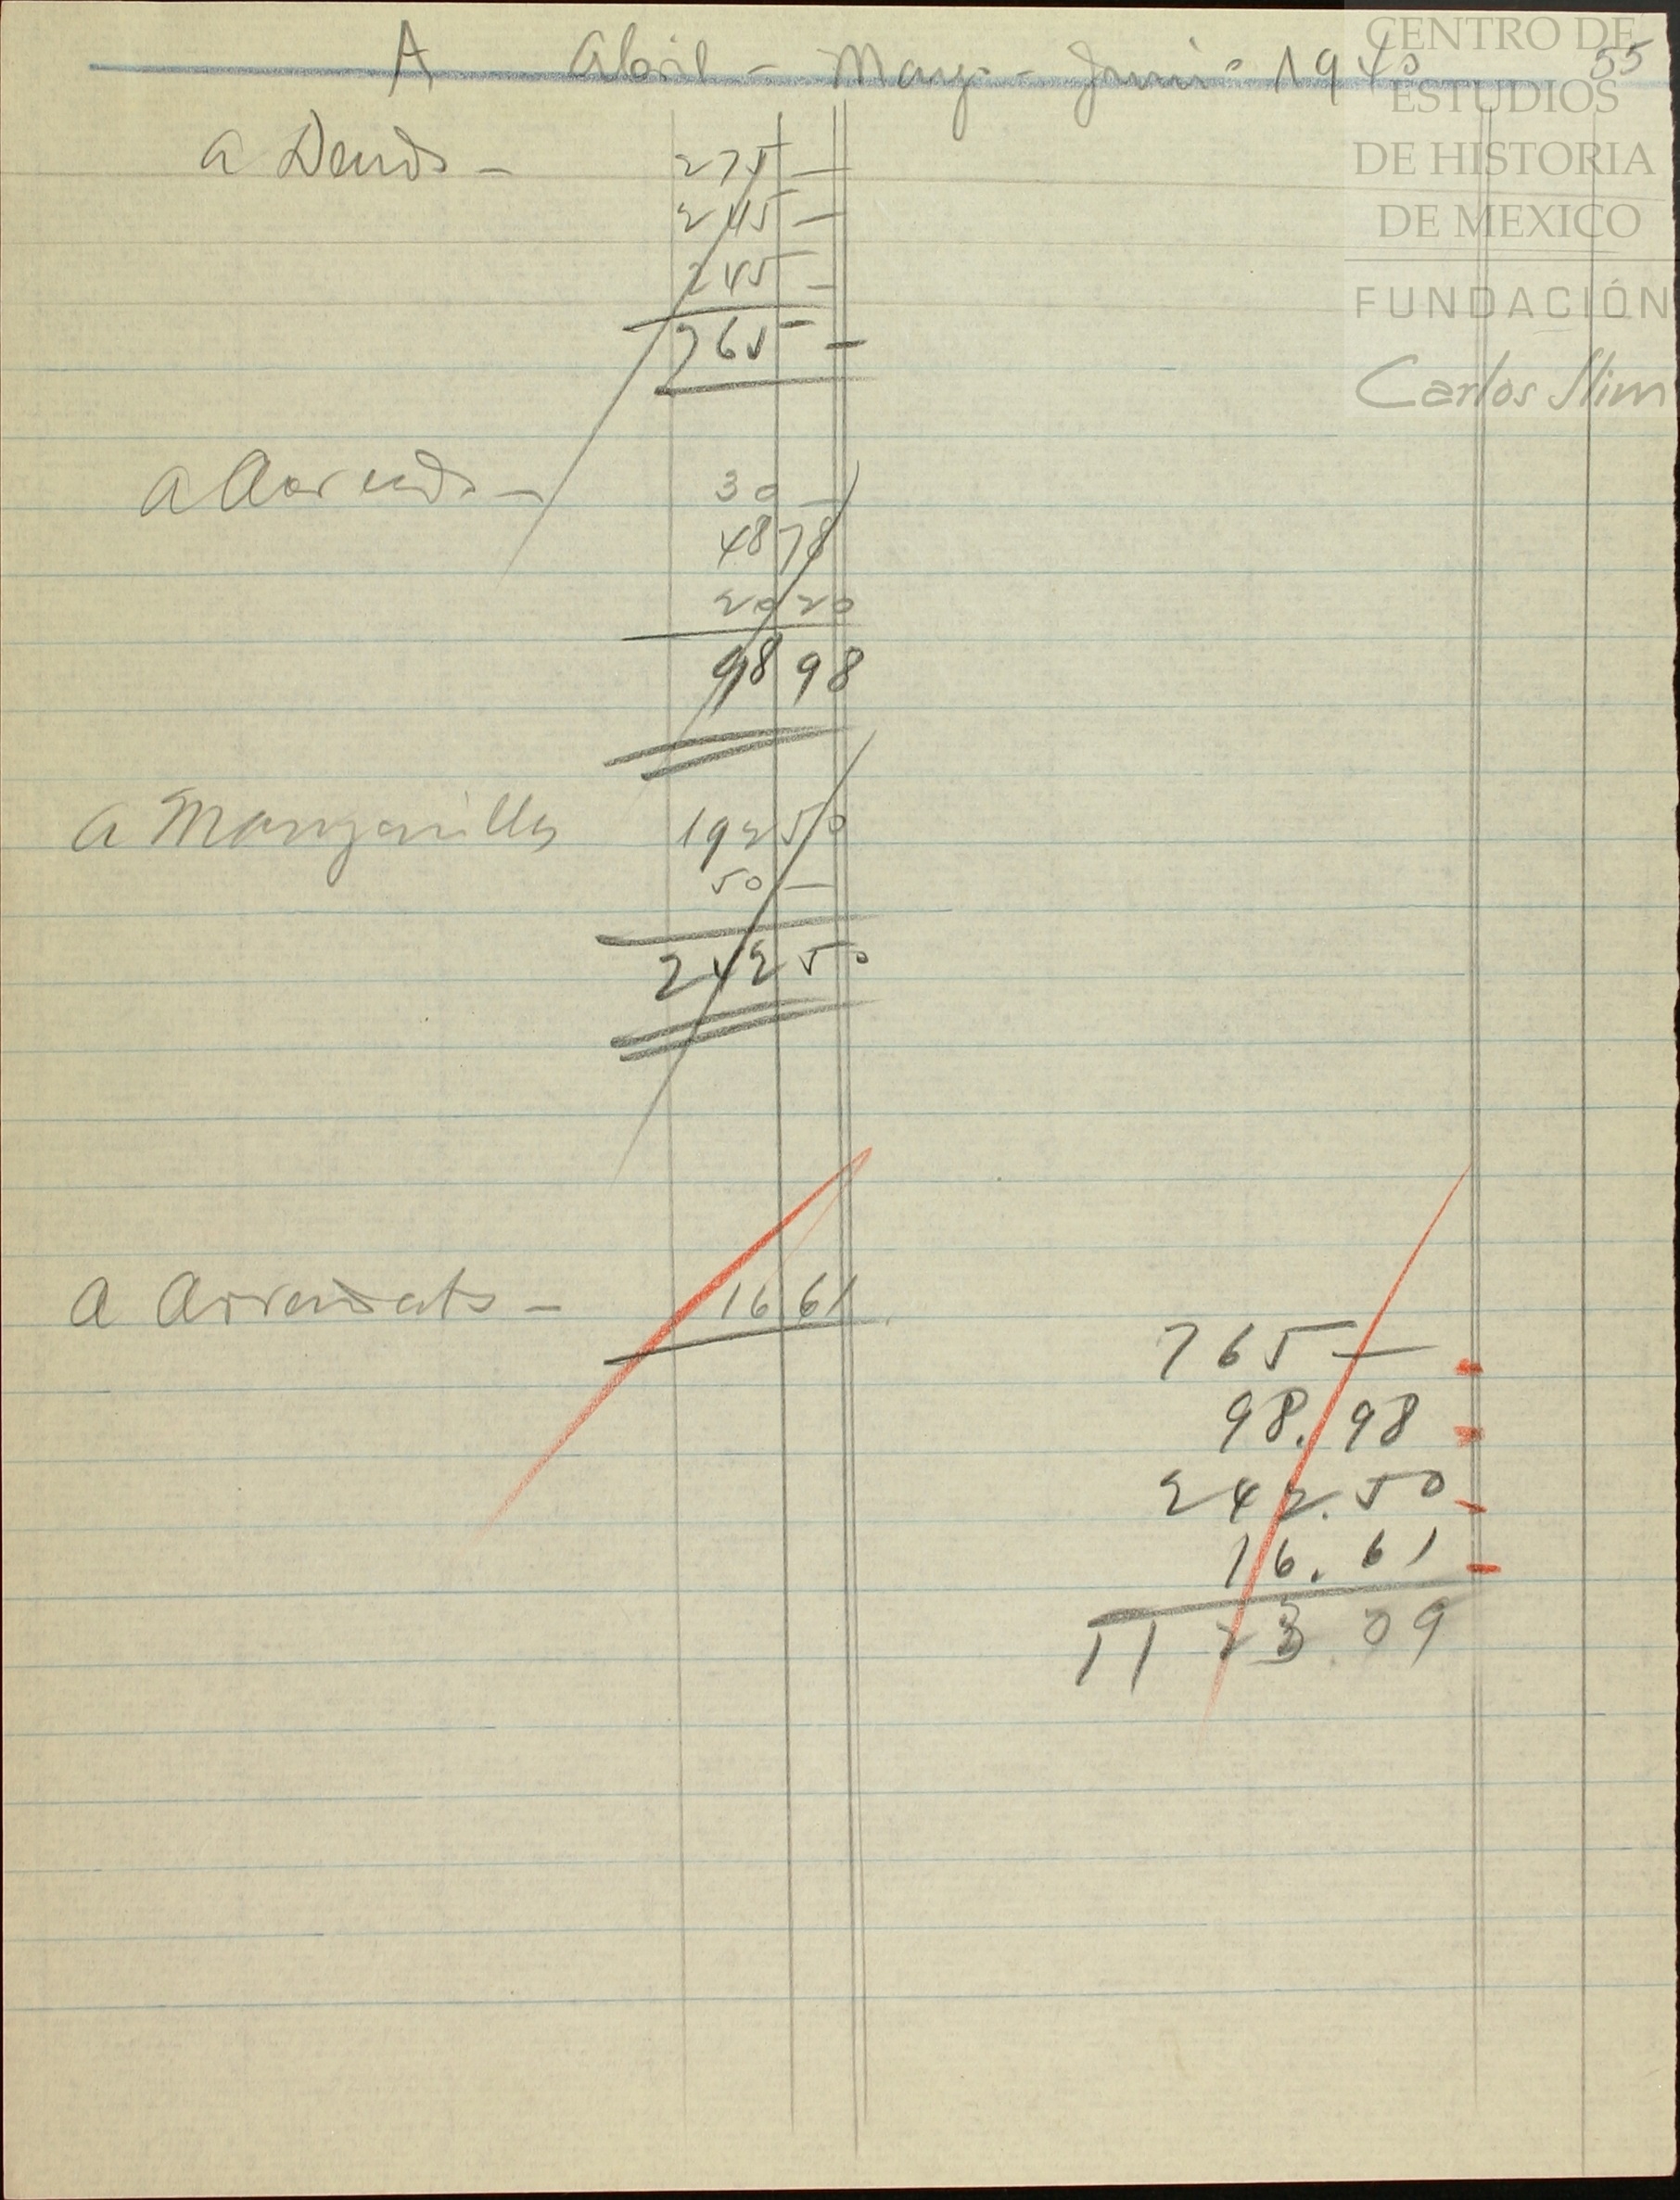 A Abril - Mayo - Junio 1940 55
CENTRO DE
ESTUDIOS
DE HISTORIA
DE MEXICO
FUNDACIÓN
Carlos Slim
a -
275 —
245 —
245 —
765 —
a -
30 —
48 78
20 20
98 98
a Manzanillo
192 50
50 —
242 50
a -
16 61
765 —
98.98
242.50
16.61
1123.09